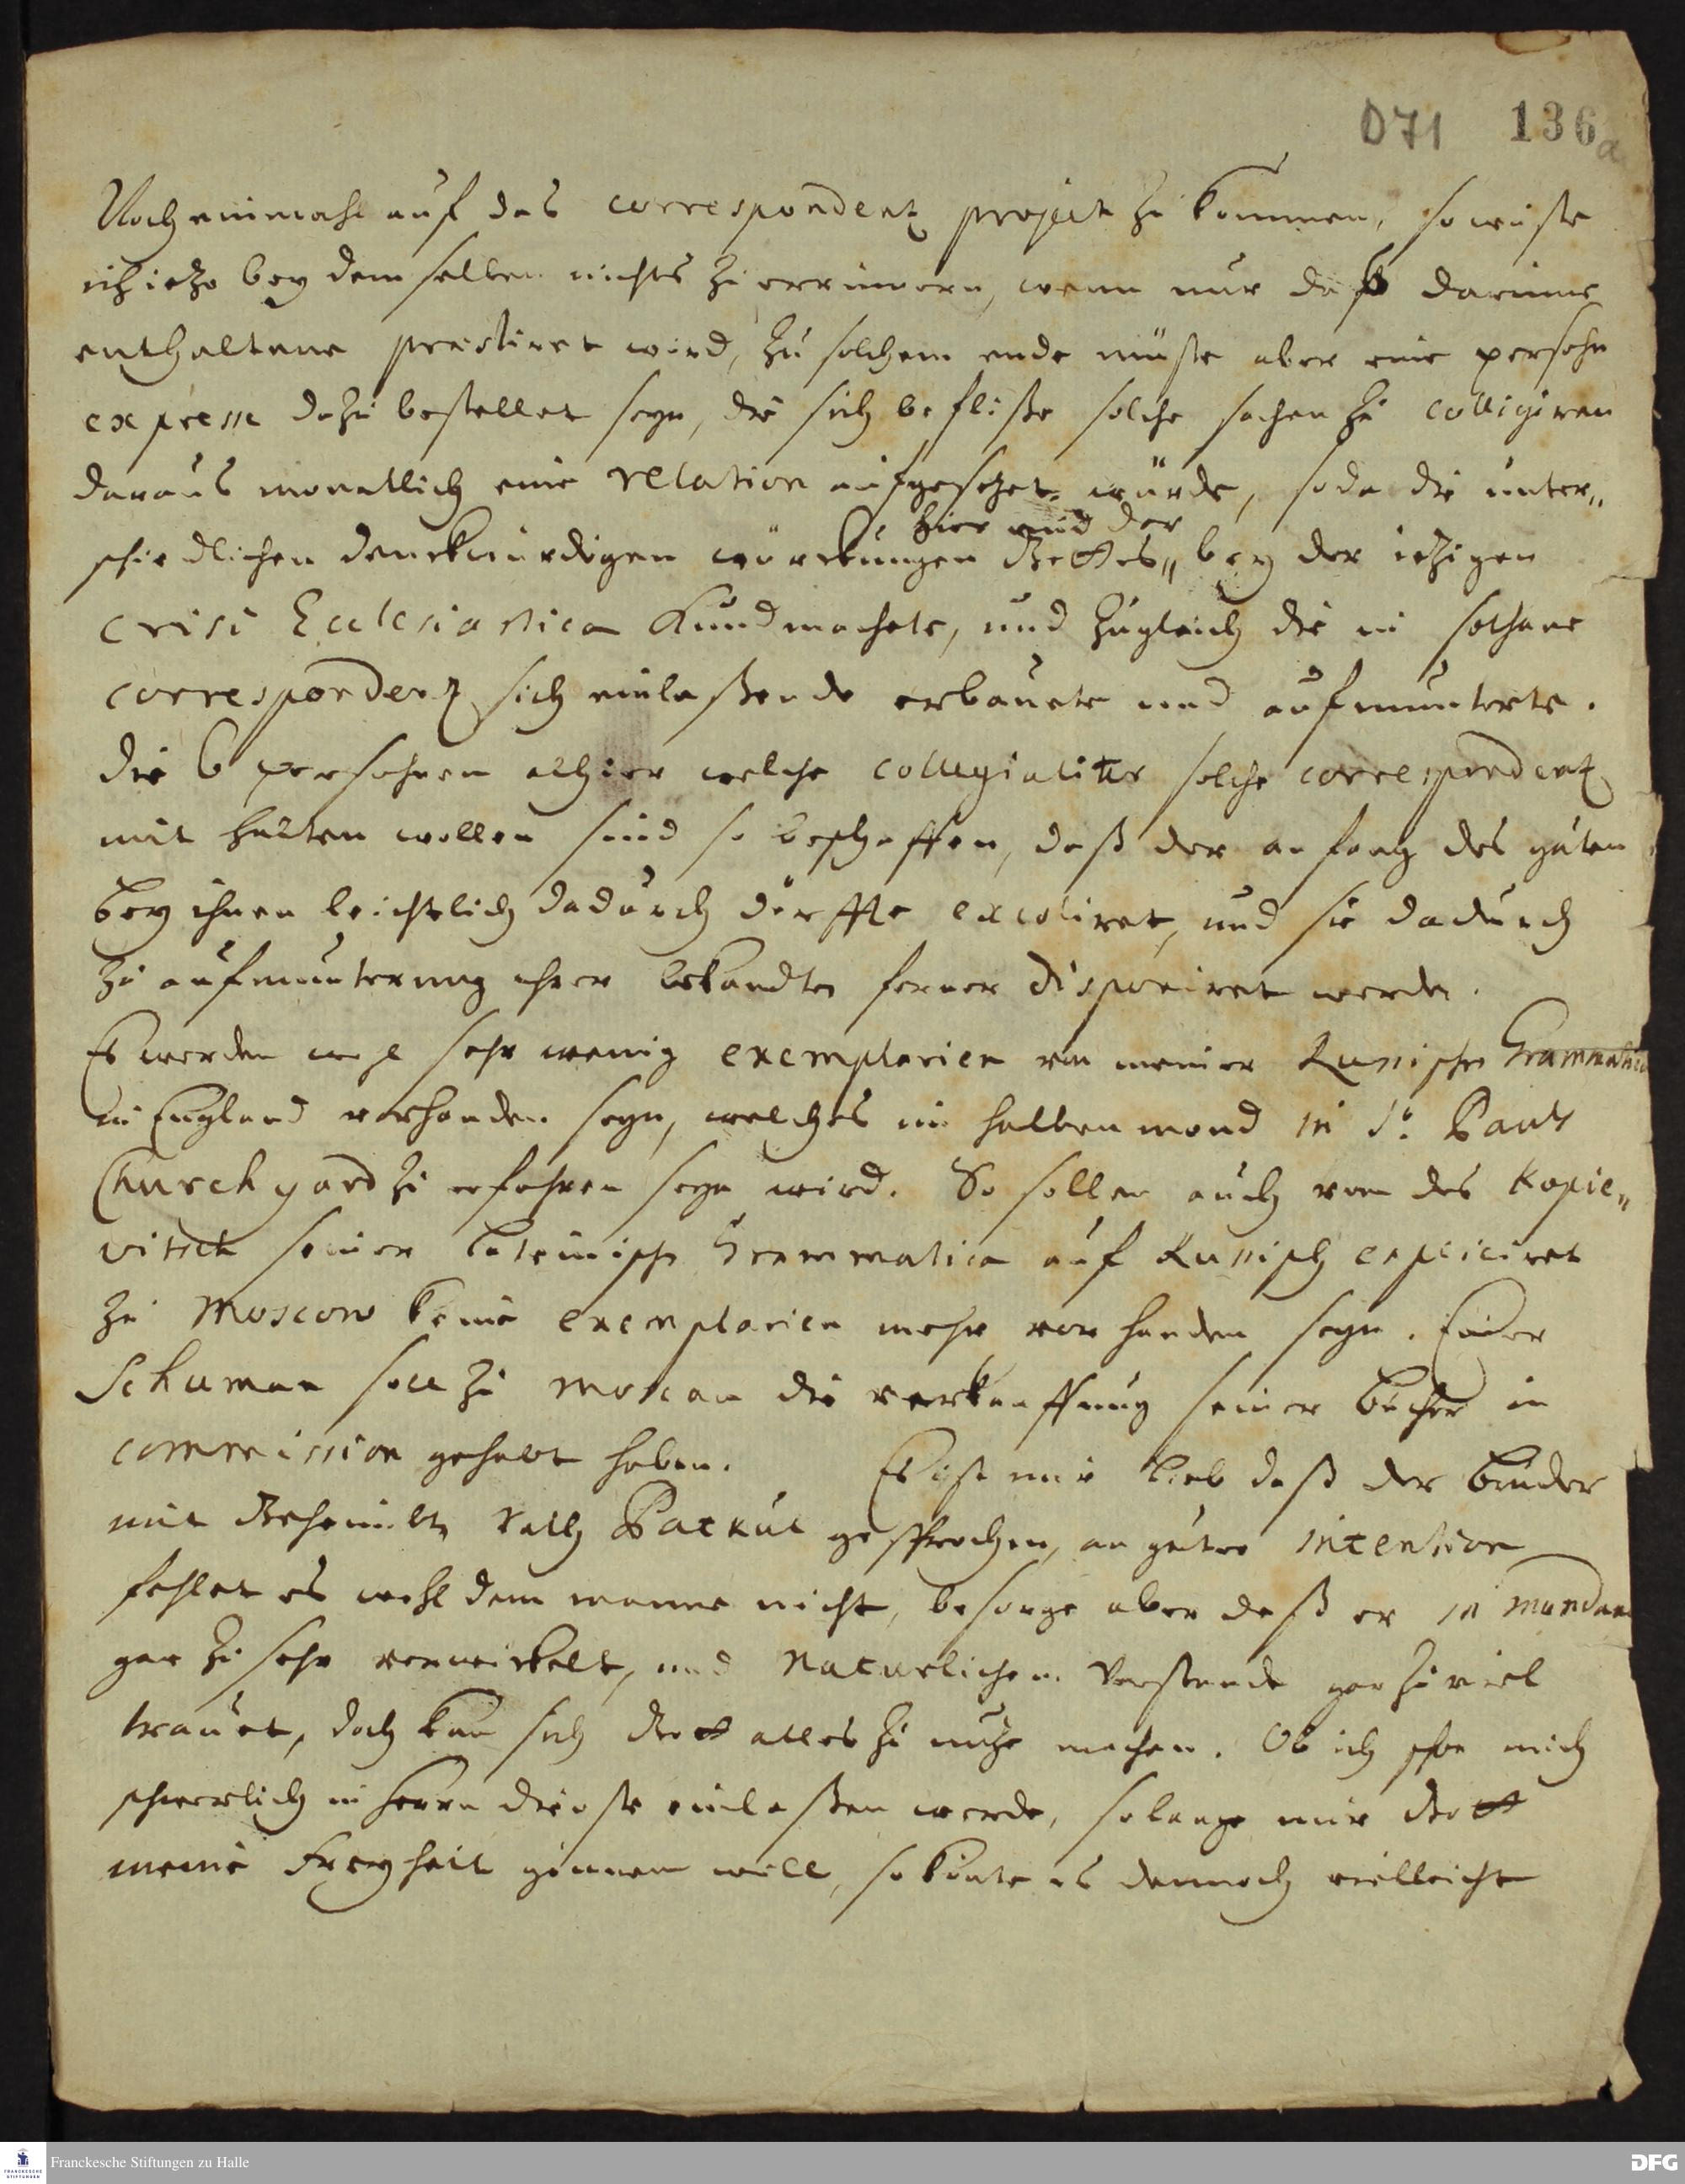 071 136a
Noch einmahl auf das correspondentz project zu kommen, so wüste
ich ietzo bey dem selben nichts zu erinnern, wenn nur daß darinne
enthaltene praestiret wird, zu solchem ende müste aber eine persohn
expresse dazu bestellet seyn, die sich befliße solche sachen zu colligiren
daraus monatlich eine relation aufgesetzet würde, so da die unter„
hier und dar
schiedlichen denckwürdigen würckungen Gottes„ bey der ietzigen
crisi Ecclesiastica kund machete, und zugleich die in sothane
correspondentz sich einlaßende erbauete und aufmunterte.
die 6 persohnen alhier welche collegialiter solche correspondentz
mit halten wollen sind so beschaffen, daß der anfang des guten
bey ihnen leichtlich dadurch dörffte excoliret, und sie dadurch
zu aufmunterung ihrer bekandten ferner disponiret werden.
Es werden wohl sehr wenig exemplarien von meiner Russischen Grammatica
in England vorhanden seyn, welches im halben mond in St. Pauls
Churchyard zu erfahren seyn wird. So sollen auch von des Kopie„
vitsch seiner lateinischen Grammatica auf Russisch expliciret
zu Moscow keine exemplarien mehr vorhanden seyn. Einer
Schuman soll zu Moscau die verkauffung seiner bücher in
commission gehabt haben. Es ist mir lieb daß der bruder
mit Geheimbten Rath Patkul gesprochen, an guter intention
fehlet es wohl dem manne nicht, besorge aber daß er in mundan
gar zu sehr verwickelt, und naturlichem Verstande gar zu viel
trauet, doch kan sich Gott alles zu nutze machen. Ob ich schon mich
schwerlich in herrn dienste einlaßen werde, so lange mir Gott
meine Freyheit gönnen will, so könte es dennoch vielleicht
Franckesche Stiftungen zu Halle
FRANCKESCHE STIFTUNGEN
DFG